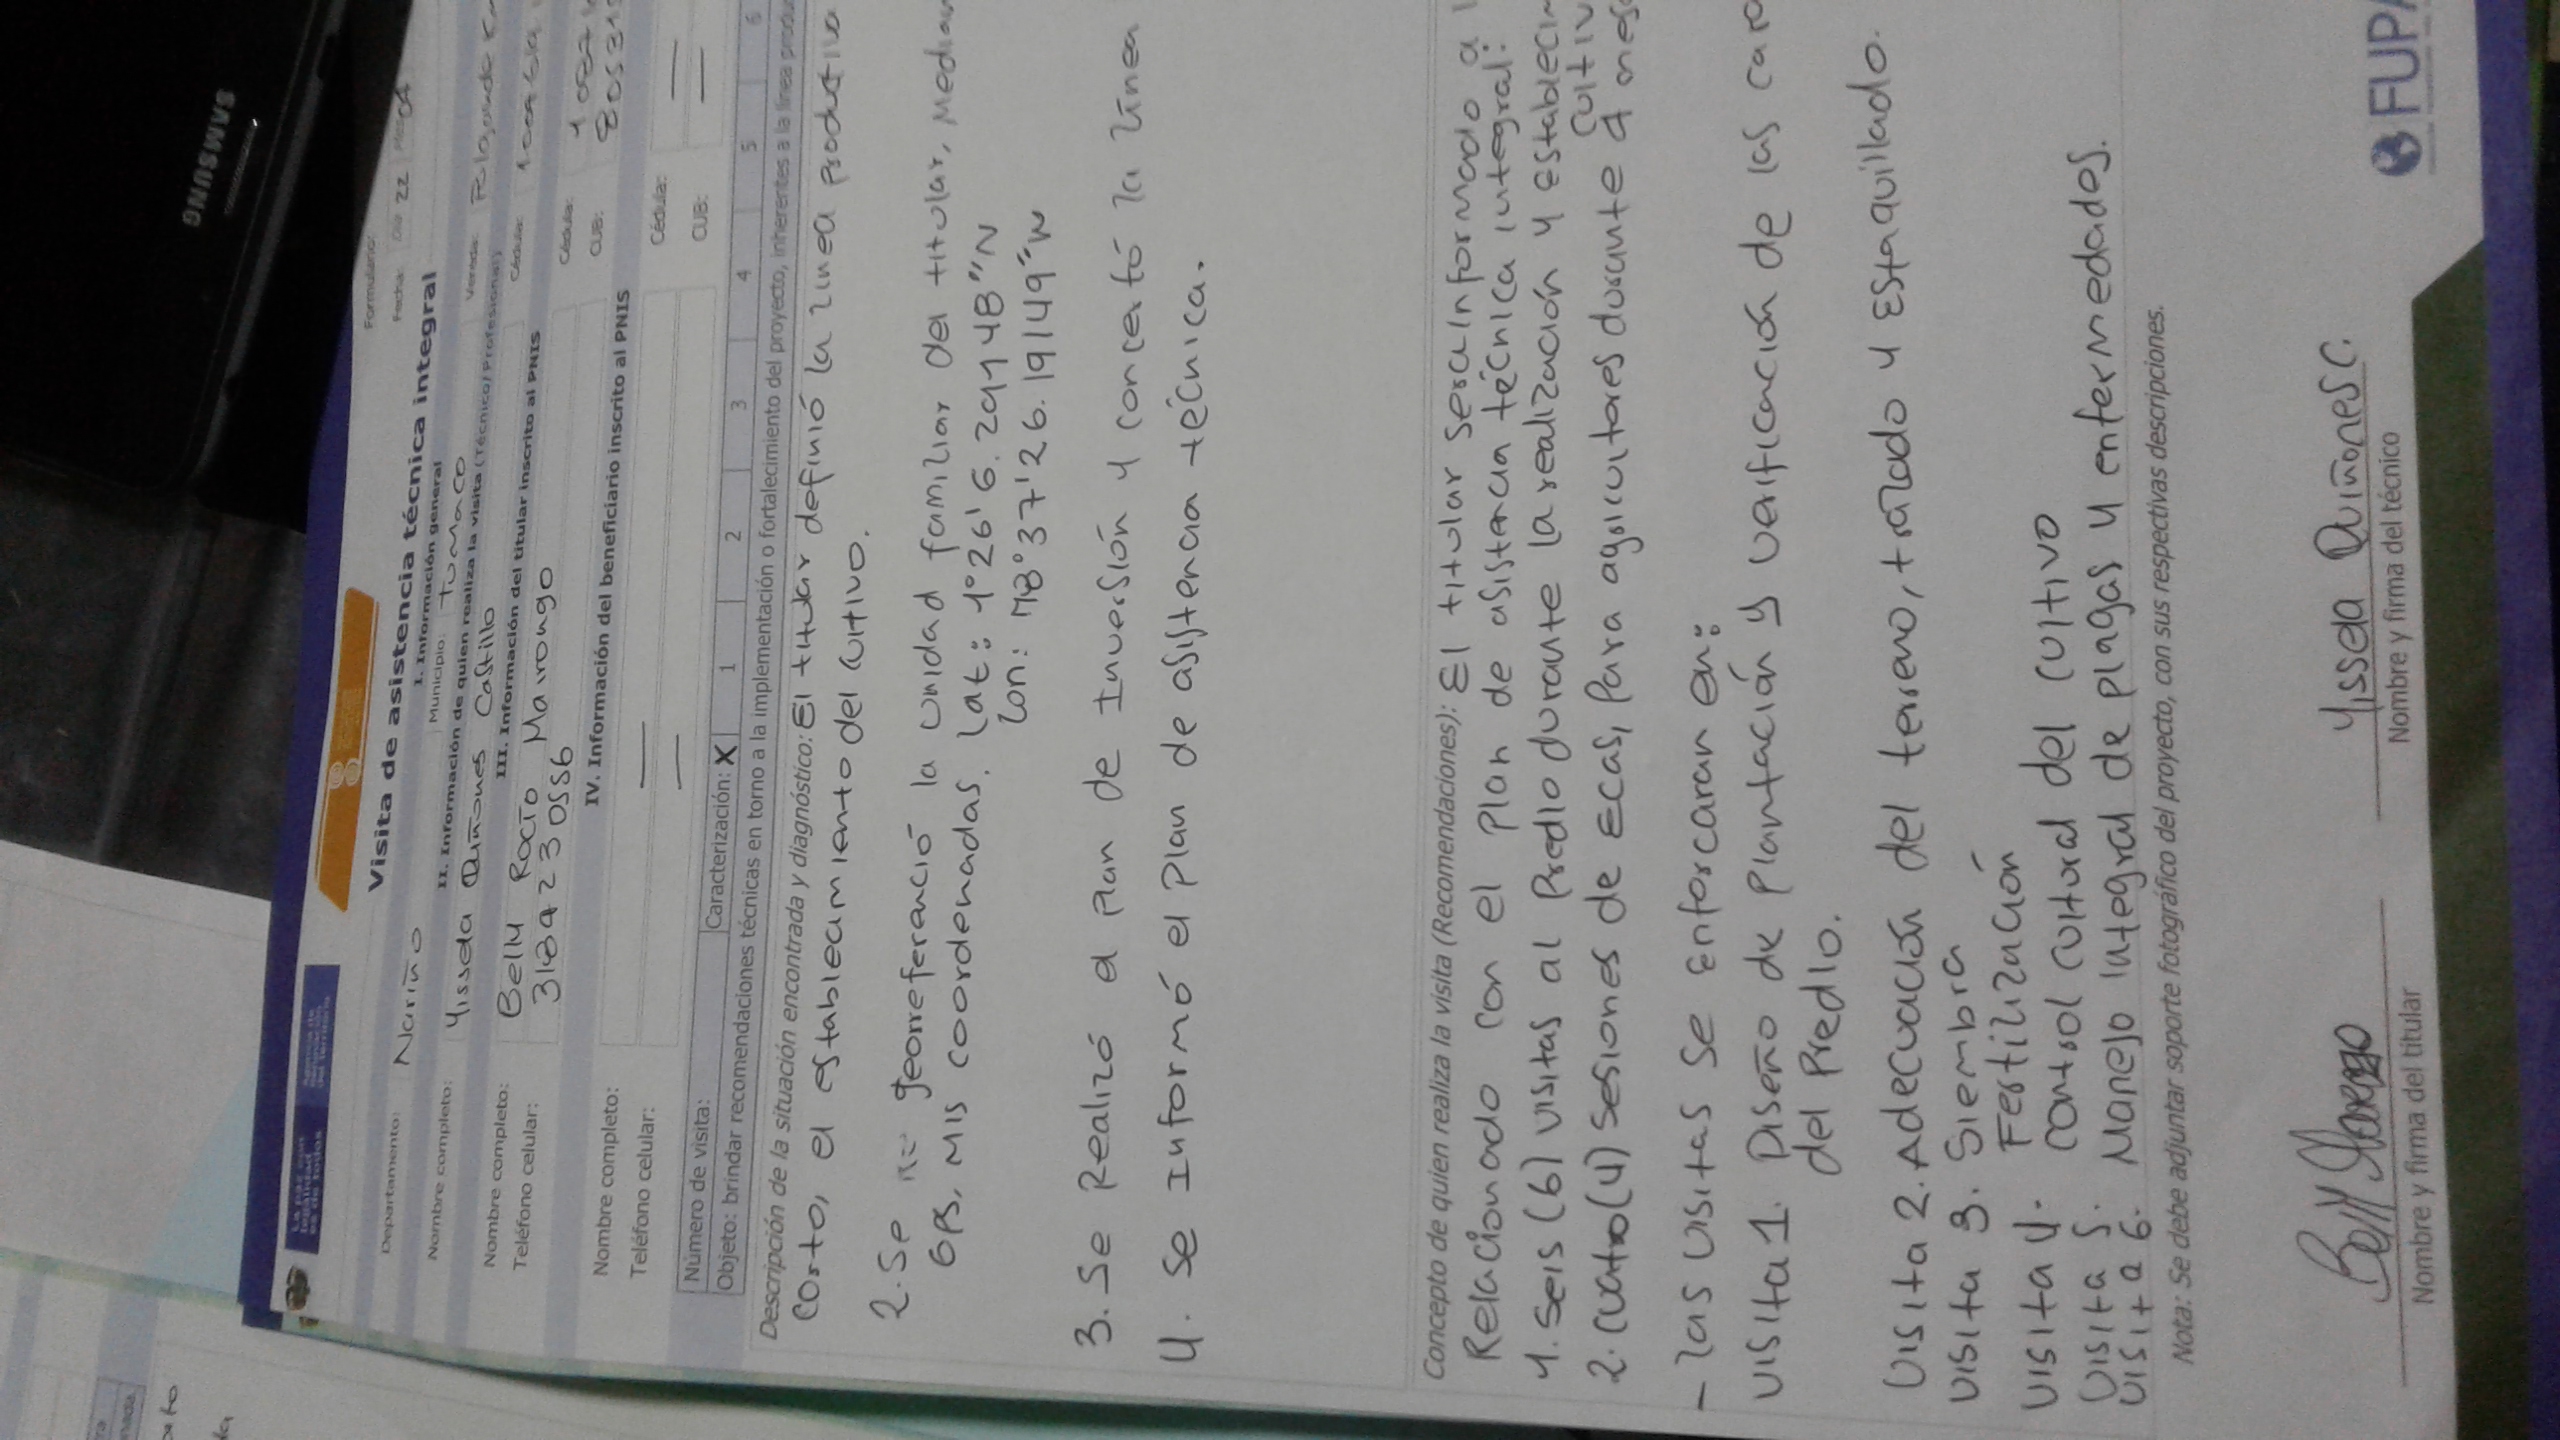 SAMSUNG
La paz con
legalidad
es de todos
Formulario:
Visita de asistencia técnica integral
Fecha: Día 22 Mes 04
I. Información general
Departamento: Nariño Municipio: Tumaco Vereda:
II. Información de quien realiza la visita (Técnico/Profesional)
Nombre completo: Yissela Quiñones Castillo Cédula:
III. Información del titular inscrito al PNIS
Nombre completo: Belly Rocío Marongo Cédula:
Teléfono celular: 3184230556 CUB:
IV. Información del beneficiario inscrito al PNIS
Nombre completo: — Cédula: —
Teléfono celular: — CUB: —
Número de visita: Caracterización: X 1 2 3 4 5 6
Objeto: brindar recomendaciones técnicas en torno a la implementación o fortalecimiento del proyecto, inherentes a la línea
Descripción de la situación encontrada y diagnóstico: El titular definió la línea productiva
corto, el establecimiento del cultivo.
2. Se georreferenció la unidad familiar del titular,
GPS, Mis coordenadas. Lat: 1°26'6.29448"N
Lon: 78°37'26.19149"W
3. Se Realizó el Plan de Inversión y concertó la línea
4. Se Informó el Plan de asistencia técnica.
Concepto de quien realiza la visita (Recomendaciones): El titular sera informado a
Relacionado con el Plan de asistencia técnica integral:
1. Seis (6) visitas al Predio durante la realización y
cultiv
2. cuatro (4) Sesiones de Ecas, Para agricultores durante 4
- Las visitas se Enforcaran en:
Visita 1. Diseño de Plantación y verificación de las
del Predio.
Visita 2. Adecuación del terreno, trazado y Estaquillado.
Visita 3. Siembra
Visita 4. Fertilización
Visita 5. Control cultural del cultivo
Visita 6. Manejo Integral de plagas y enfermedades.
Nota: Se debe adjuntar soporte fotográfico del proyecto, con sus respectivas descripciones.
Yissela Quiñones C.
Nombre y firma del titular Nombre y firma del técnico
FUPA